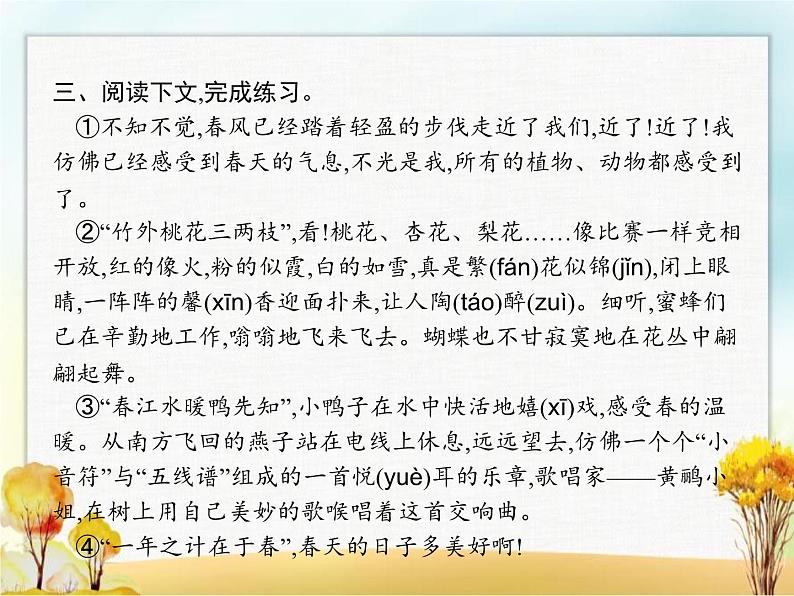 三、阅读下文,完成练习。
①不知不觉,春风已经踏着轻盈的步伐走近了我们,近了!近了!我
仿佛已经感受到春天的气息,不光是我,所有的植物、动物都感受到
了。
②“竹外桃花三两枝”,看!桃花、杏花、梨花……像比赛一样竞相
开放,红的像火,粉的似霞,白的如雪,真是繁(fán)花似锦(jǐn),闭上眼
睛,一阵阵的馨(xīn)香迎面扑来,让人陶(táo)醉(zuì)。细听,蜜蜂们
已在辛勤地工作,嗡嗡地飞来飞去。蝴蝶也不甘寂寞地在花丛中翩
翩起舞。
③“春江水暖鸭先知”,小鸭子在水中快活地嬉(xī)戏,感受春的温
暖。从南方飞回的燕子站在电线上休息,远远望去,仿佛一个个“小
音符”与“五线谱”组成的一首悦(yuè)耳的乐章,歌唱家——黄鹂小
姐,在树上用自己美妙的歌喉唱着这首交响曲。
④“一年之计在于春”,春天的日子多美好啊!